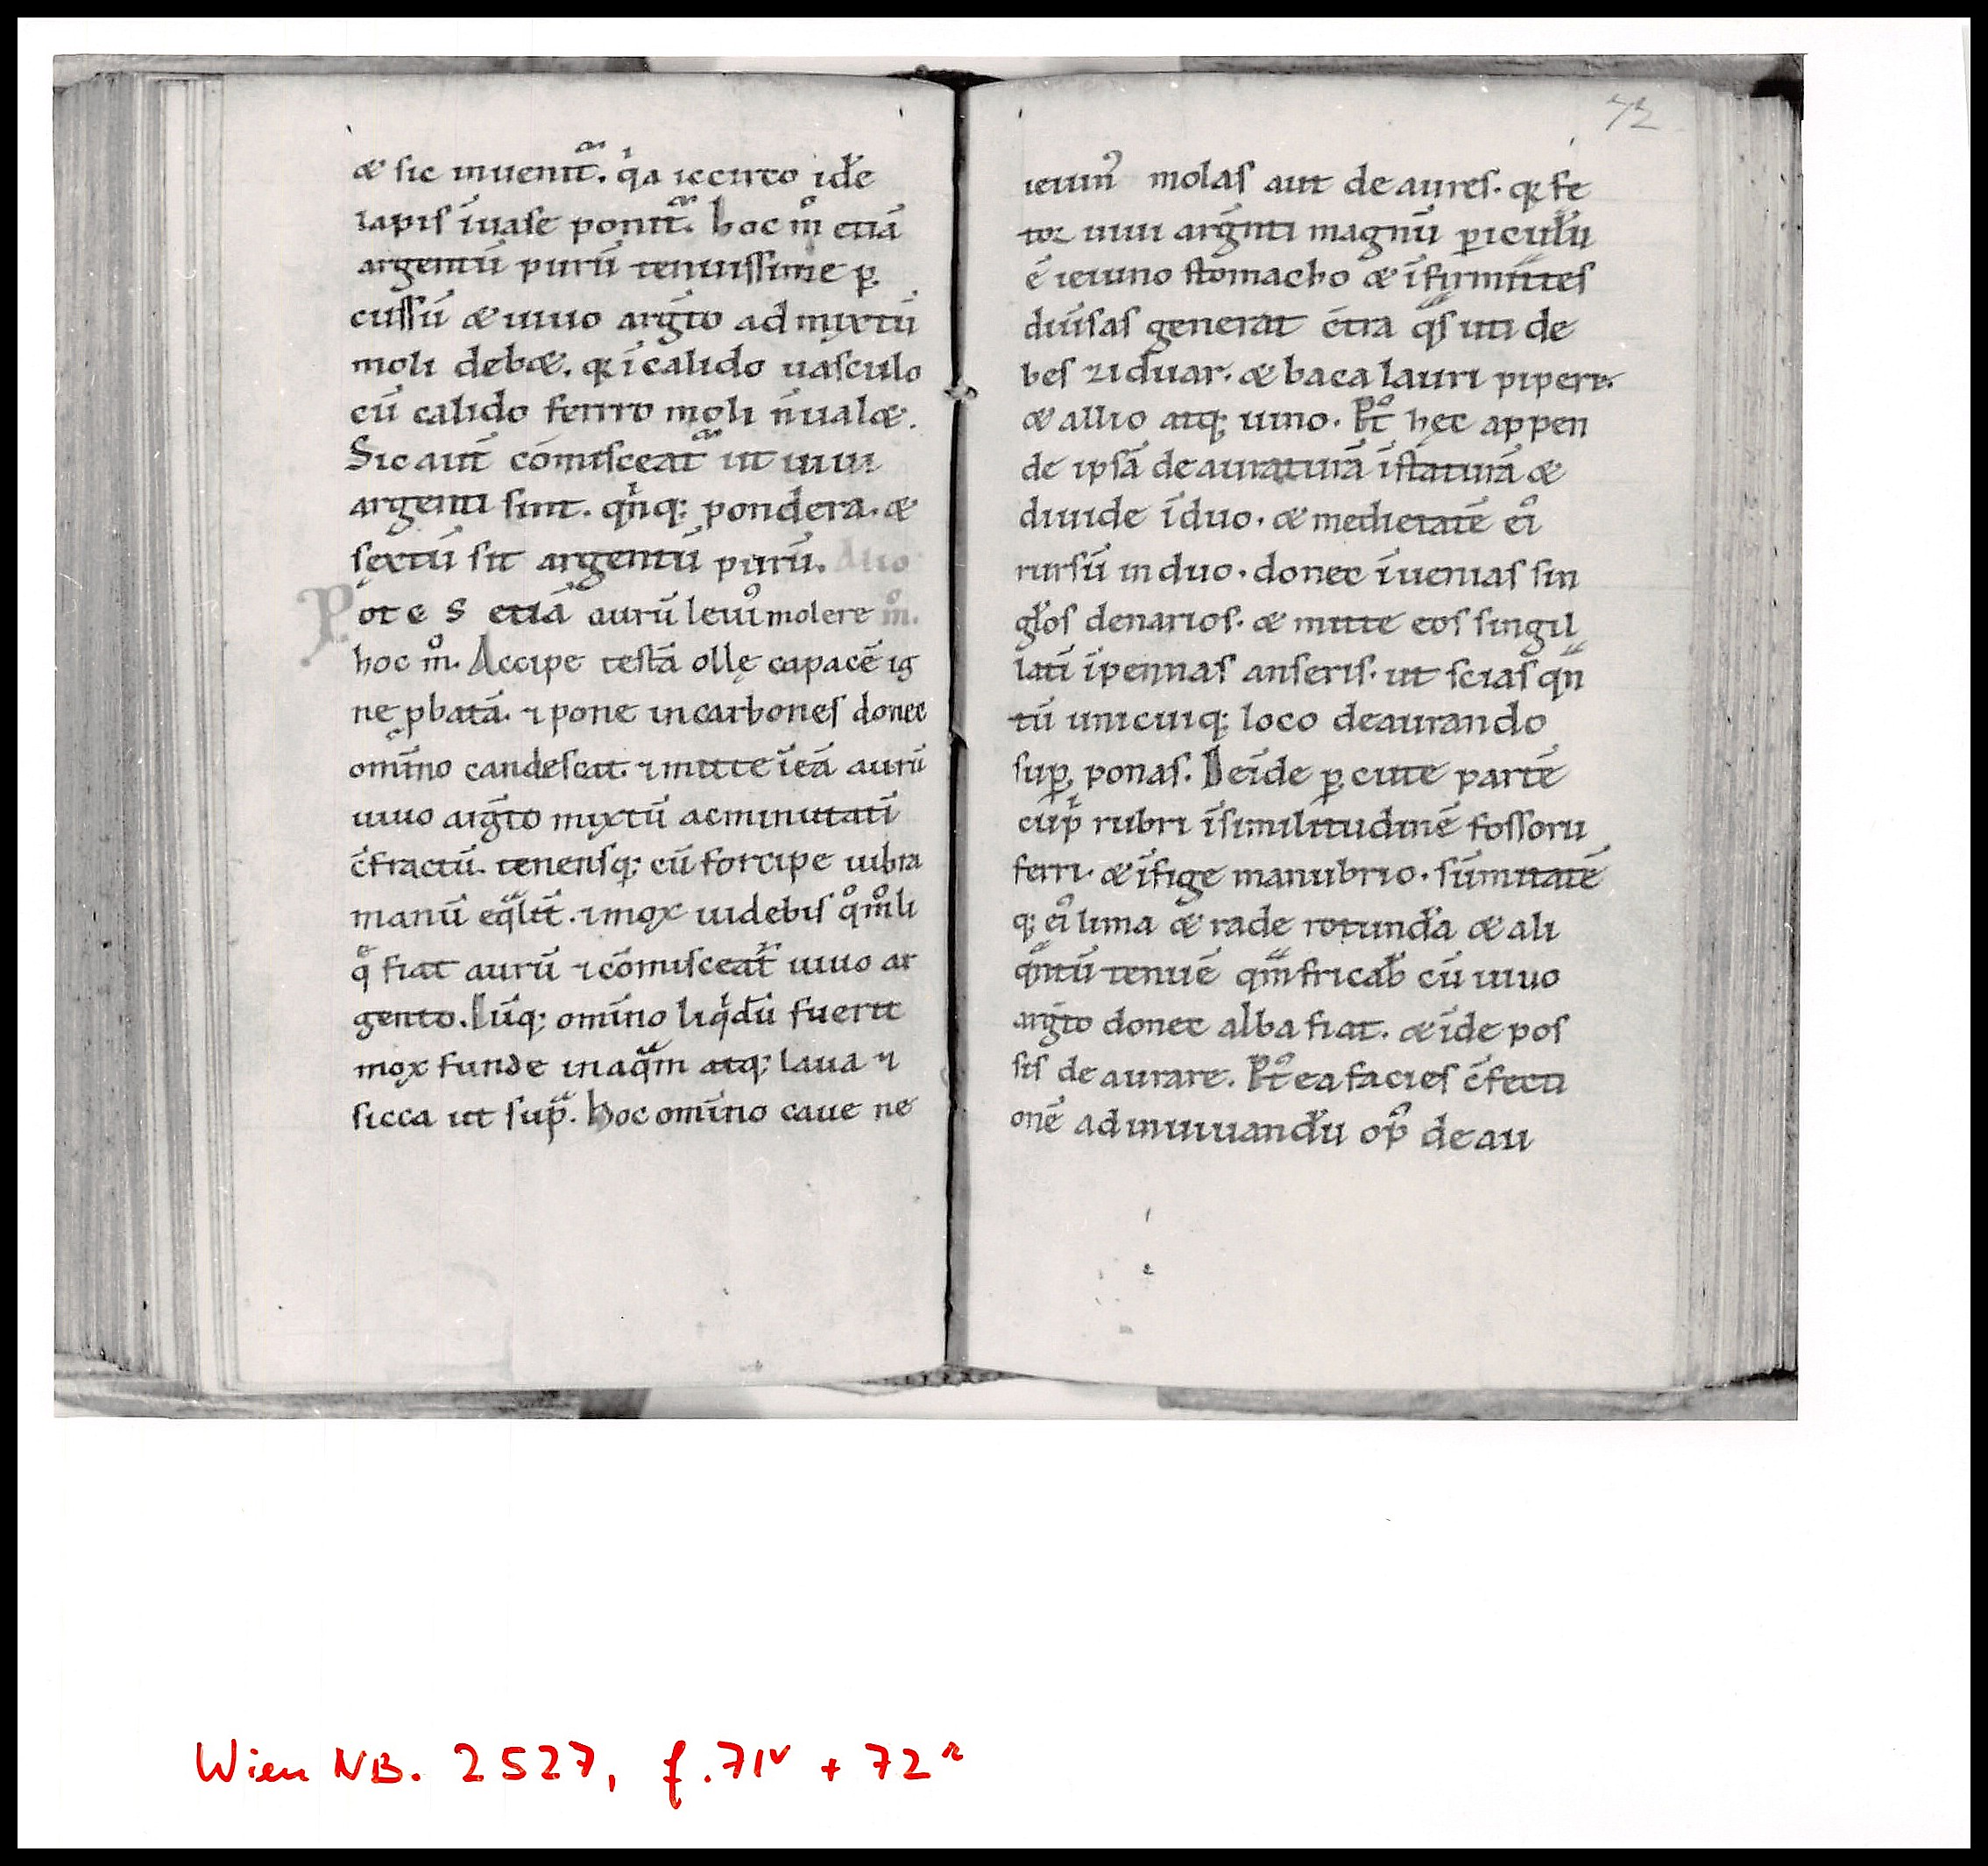 & sic inuenit᷑. q̍a iccirco id̄e
lapis īuase ponit᷑. hoc m̊ etiā
argentū purū tenuissime ꝑ
cussū & uiuo arḡto admixtū
moli deb&. qꝛ ī calido uasculo
cū calido ferro moli ñ ual&.
Sic aut̄ cōmisceat᷑ ut uiui
argenti sint. qn̍q; pondera. &
sextū sit argentū purū. Alio
Potes etiā aurū leui᷒ molere m̊.
hoc m̊. Accipe testā ollę capacē ig
ne ꝓbatā. ⁊ pone in carbones donec
omīno candescat. ⁊ mitte ī eā aurū
uiuo arḡto mixtū ac minutatī
c̄fractū. tenensq; cū forcipe uibra
manū eq̄lit̄. ⁊ mox uidebis q̊m̊ li
q̄fiat aurū ⁊ cōmisceat᷑ uiuo ar
gento. Cūq; omīno liq̍dū fuerit
mox funde in aq̄m atq; laua ⁊
sicca ut sup̄. Hoc omīno caue ne
72
ieiun᷒ molas aut deaures. qꝛ fe
tor uiui arḡnti magnū ꝑiculū
ē ieiuno stomacho & īfirmit̄tes
diūsas generat c̄tra q̄s uti de
bes ziduar. & baca lauri pipere.
& allio atq; uino. P᷒t hęc appen
de ipsā deauraturā ī staturā &
diuide ī duo. & medietatē ei᷒
rursū in duo. donec īuenias sin
gl̄os denarios. & mitte eos singil
latī ī pennas anseris. ut scias qn̄
tū unicuiq; loco deaurando
suꝑ ponas. Deīde ꝑcute partē
cup̍ rubri ī similitudinē fossorii
ferri. & īfige manubrio. sūmitatē
q; ei᷒ lima & rade rotund̄a & ali
q̄ntū tenuē qm̄ fricab̄ cū uiuo
arḡto donec alba fiat. & īde pos
sis deaurare. P᷒t ea facies c̄fecti
onē ad inuiuandū op᷒ deau
Wien NB. 2527, f. 71v + 72r